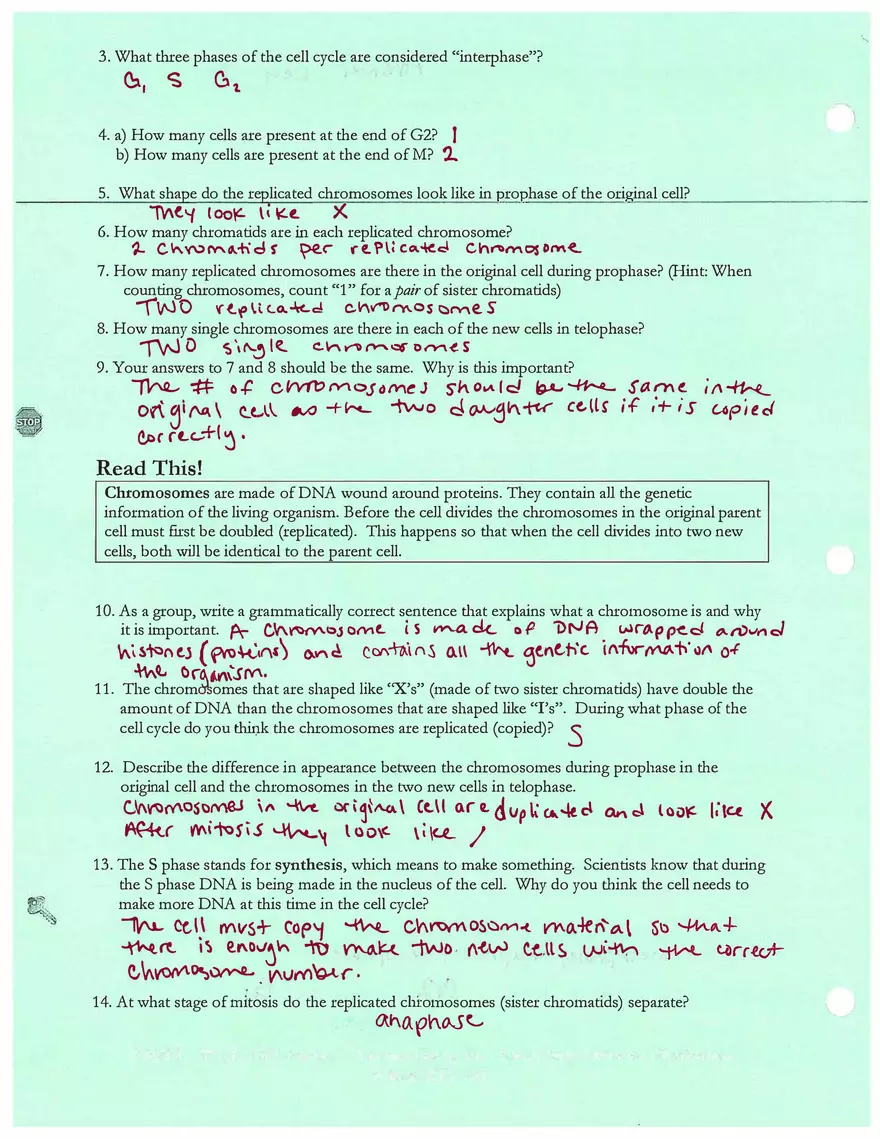 3. What three phases of the cell cycle are considered “interphase”?
G₁ S G₂
4. a) How many cells are present at the end of G2? 1
b) How many cells are present at the end of M? 2
5. What shape do the replicated chromosomes look like in prophase of the original cell?
They look like X
6. How many chromatids are in each replicated chromosome?
2 chromatids per replicated chromosome
7. How many replicated chromosomes are there in the original cell during prophase? (Hint: When
counting chromosomes, count “1” for a pair of sister chromatids)
TWO replicated chromosomes
8. How many single chromosomes are there in each of the new cells in telophase?
TWO single chromosomes
9. Your answers to 7 and 8 should be the same. Why is this important?
The # of chromosomes should be the same in the
original cell as the two daughter cells if it is copied
correctly.
STOP
Read This!
Chromosomes are made of DNA wound around proteins. They contain all the genetic
information of the living organism. Before the cell divides the chromosomes in the original parent
cell must first be doubled (replicated). This happens so that when the cell divides into two new
cells, both will be identical to the parent cell.
10. As a group, write a grammatically correct sentence that explains what a chromosome is and why
it is important. A chromosome is made of DNA wrapped around
histones (proteins) and contains all the genetic information of
the organism.
11. The chromosomes that are shaped like “X’s” (made of two sister chromatids) have double the
amount of DNA than the chromosomes that are shaped like “I’s”. During what phase of the
cell cycle do you think the chromosomes are replicated (copied)? S
12. Describe the difference in appearance between the chromosomes during prophase in the
original cell and the chromosomes in the two new cells in telophase.
Chromosomes in the original cell are duplicated and look like X
After mitosis they look like /
13. The S phase stands for synthesis, which means to make something. Scientists know that during
the S phase DNA is being made in the nucleus of the cell. Why do you think the cell needs to
make more DNA at this time in the cell cycle?
The cell must copy the chromosome material so that
there is enough to make two new cells with the correct
chromosome number.
14. At what stage of mitosis do the replicated chromosomes (sister chromatids) separate?
anaphase